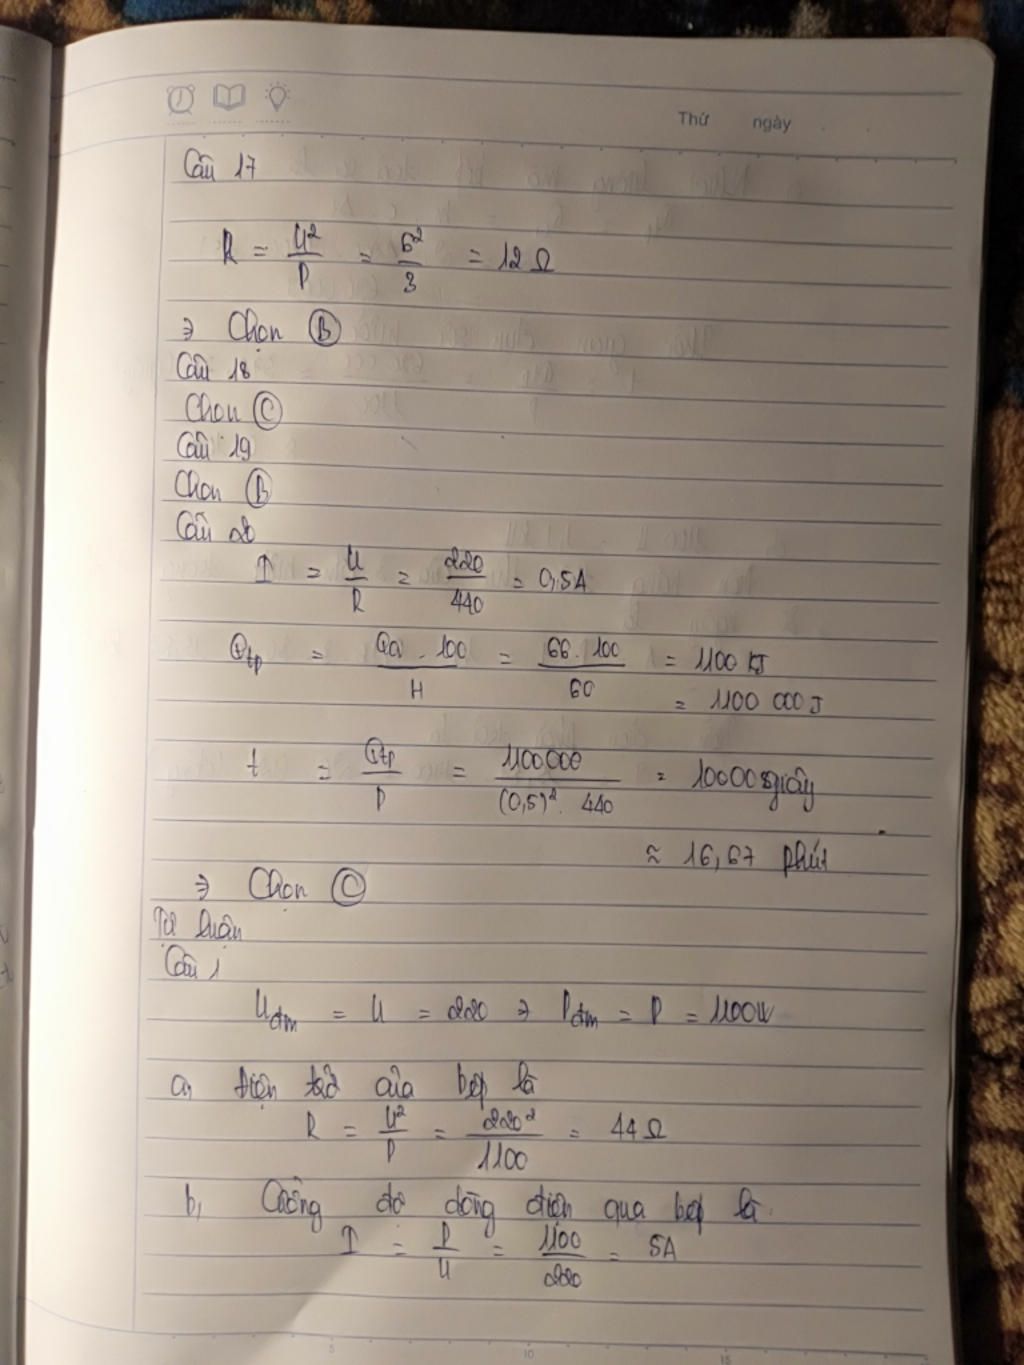 Thứ ngày
Câu 17
R = U²/P = 6²/3 = 12 Ω
⇒ Chọn Ⓑ
Câu 18
Chọn Ⓒ
Câu 19
Chọn Ⓑ
Câu 20
I = U/R = 220/440 = 0,5A
Qtp = Qci . 100/H = 66 . 100/60 = 1100 KJ
= 1100 000J
t = Qtp/P = 1100000/(0,5)² . 440 = 10000 giây
≈ 16,67 phút
⇒ Chọn Ⓒ
Tự luận
Câu 1
Uđm = U = 220 ⇒ Pđm = P = 1100W
a, điện trở của bếp là
R = U²/P = 220²/1100 = 44 Ω
b, Cường độ dòng điện qua bếp là
I = P/U = 1100/220 = 5A
5 10 15